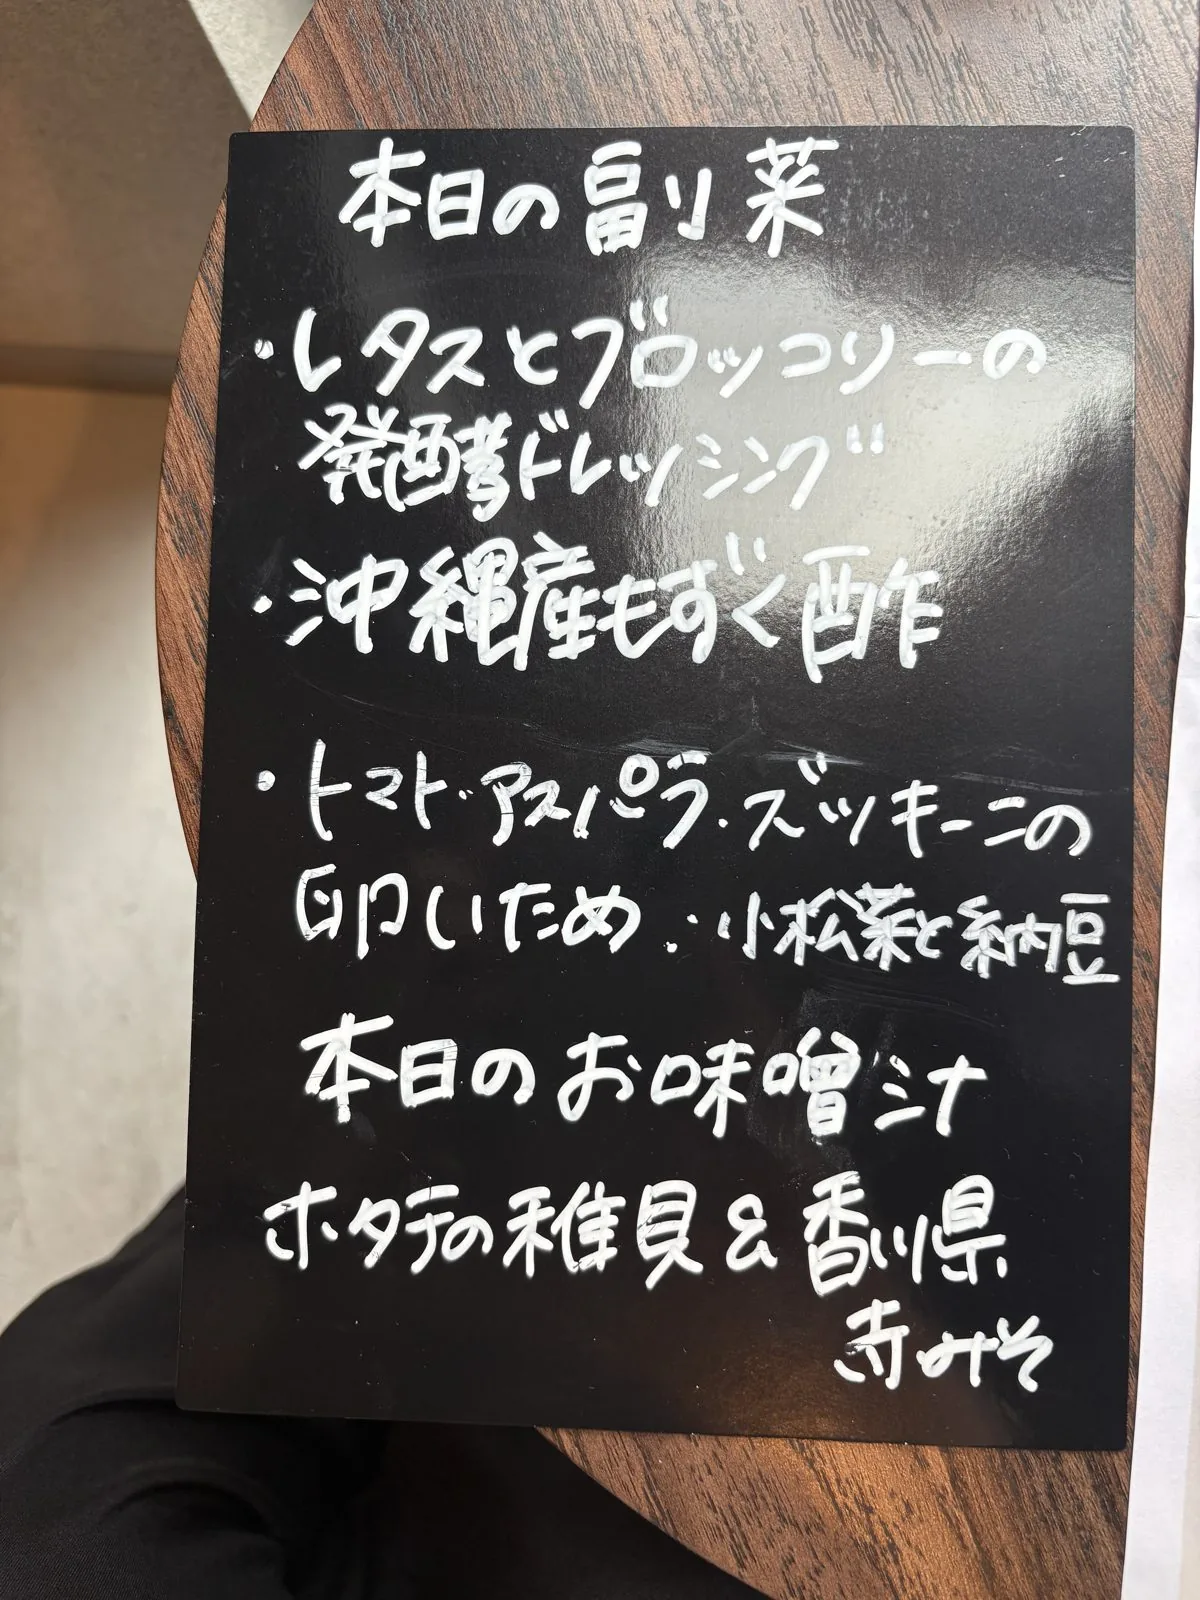 本日の副菜
・レタスとブロッコリーの
発酵ドレッシング
・沖縄産もずく酢
・トマト・アスパラ・ズッキーニの
卵いため ・小松菜と納豆
本日のお味噌汁
ホタテの稚貝&香川県
寺みそ